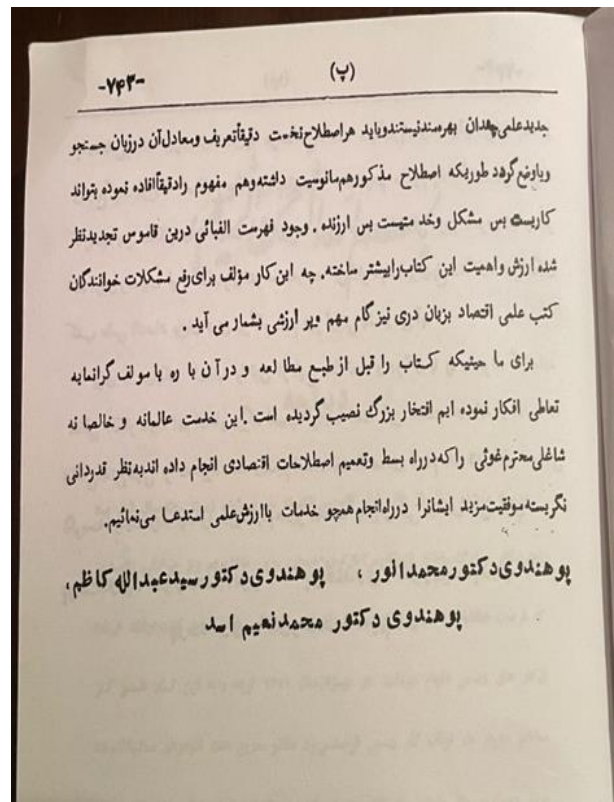 -۷۴۳-
(پ)
جدید علمی چندان بهره‌مند نیستند و باید هر اصطلاح نخست دقیقاً تعریف و معادل آن در زبان جستجو
و یا وضع گردد طوریکه اصطلاح مذکور هم مانوسیت داشته و هم مفهوم را دقیقاً افاده نموده بتواند
کاریست بس مشکل و خدمتیست بس ارزنده . وجود فهرست الفبائی درین قاموس تجدید نظر
شده ارزش و اهمیت این کتاب را بیشتر ساخته. چه این کار مؤلف برای رفع مشکلات خوانندگان
کتب علمی اقتصاد بزبان دری نیز گام مهم و پر ارزشی بشمار می آید .
برای ما حینیکه کتاب را قبل از طبع مطالعه و در آن باره با مولف گرانمایه
تعاطی افکار نموده ایم افتخار بزرگ نصیب گردیده است .این خدمت عالمانه و خالصانه
شاغلی محترم غوثی را که در راه بسط و تعمیم اصطلاحات اقتصادی انجام داده اند به نظر قدردانی
نگریسته موفقیت مزید ایشانرا در راه انجام همچو خدمات با ارزش علمی استدعا می نمائیم.
پوهندوی دکتور محمد انور ، پوهندوی دکتور سید عبدالله کاظم ،
پوهندوی دکتور محمد نعیم اسد